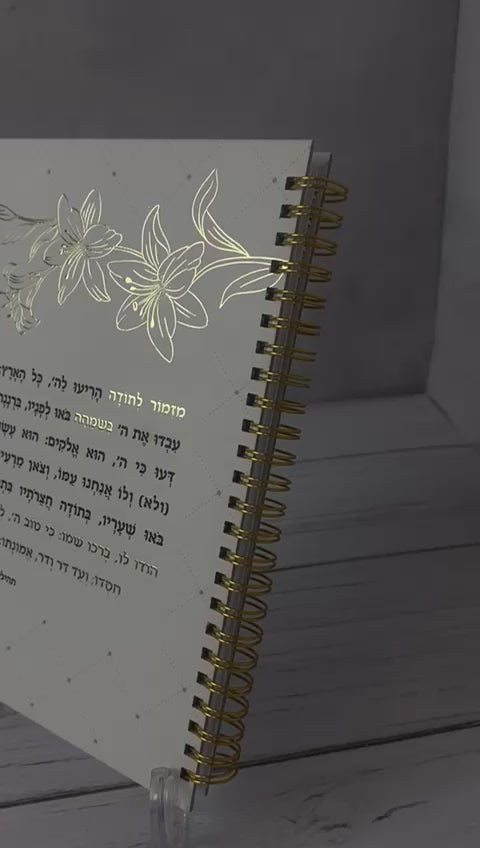 מִזְמוֹר לְתוֹדָה הָרִיעוּ לַה', כָּל הָאָרֶץ
עִבְדוּ אֶת ה' בְּשִׂמְחָה בֹּאוּ לְפָנָיו, בִּרְנָנָה
דְּעוּ כִּי ה', הוּא אֱלֹקִים: הוּא עָשָׂנוּ
(ולא) וְלוֹ אֲנַחְנוּ עַמּוֹ, וְצֹאן מַרְעִיתוֹ
בֹּאוּ שְׁעָרָיו, בְּתוֹדָה חֲצֵרֹתָיו
הוֹדוּ לוֹ, בָּרְכוּ שְׁמוֹ: כִּי טוֹב ה',
חַסְדּוֹ; וְעַד דֹּר וָדֹר, אֱמוּנָתוֹ